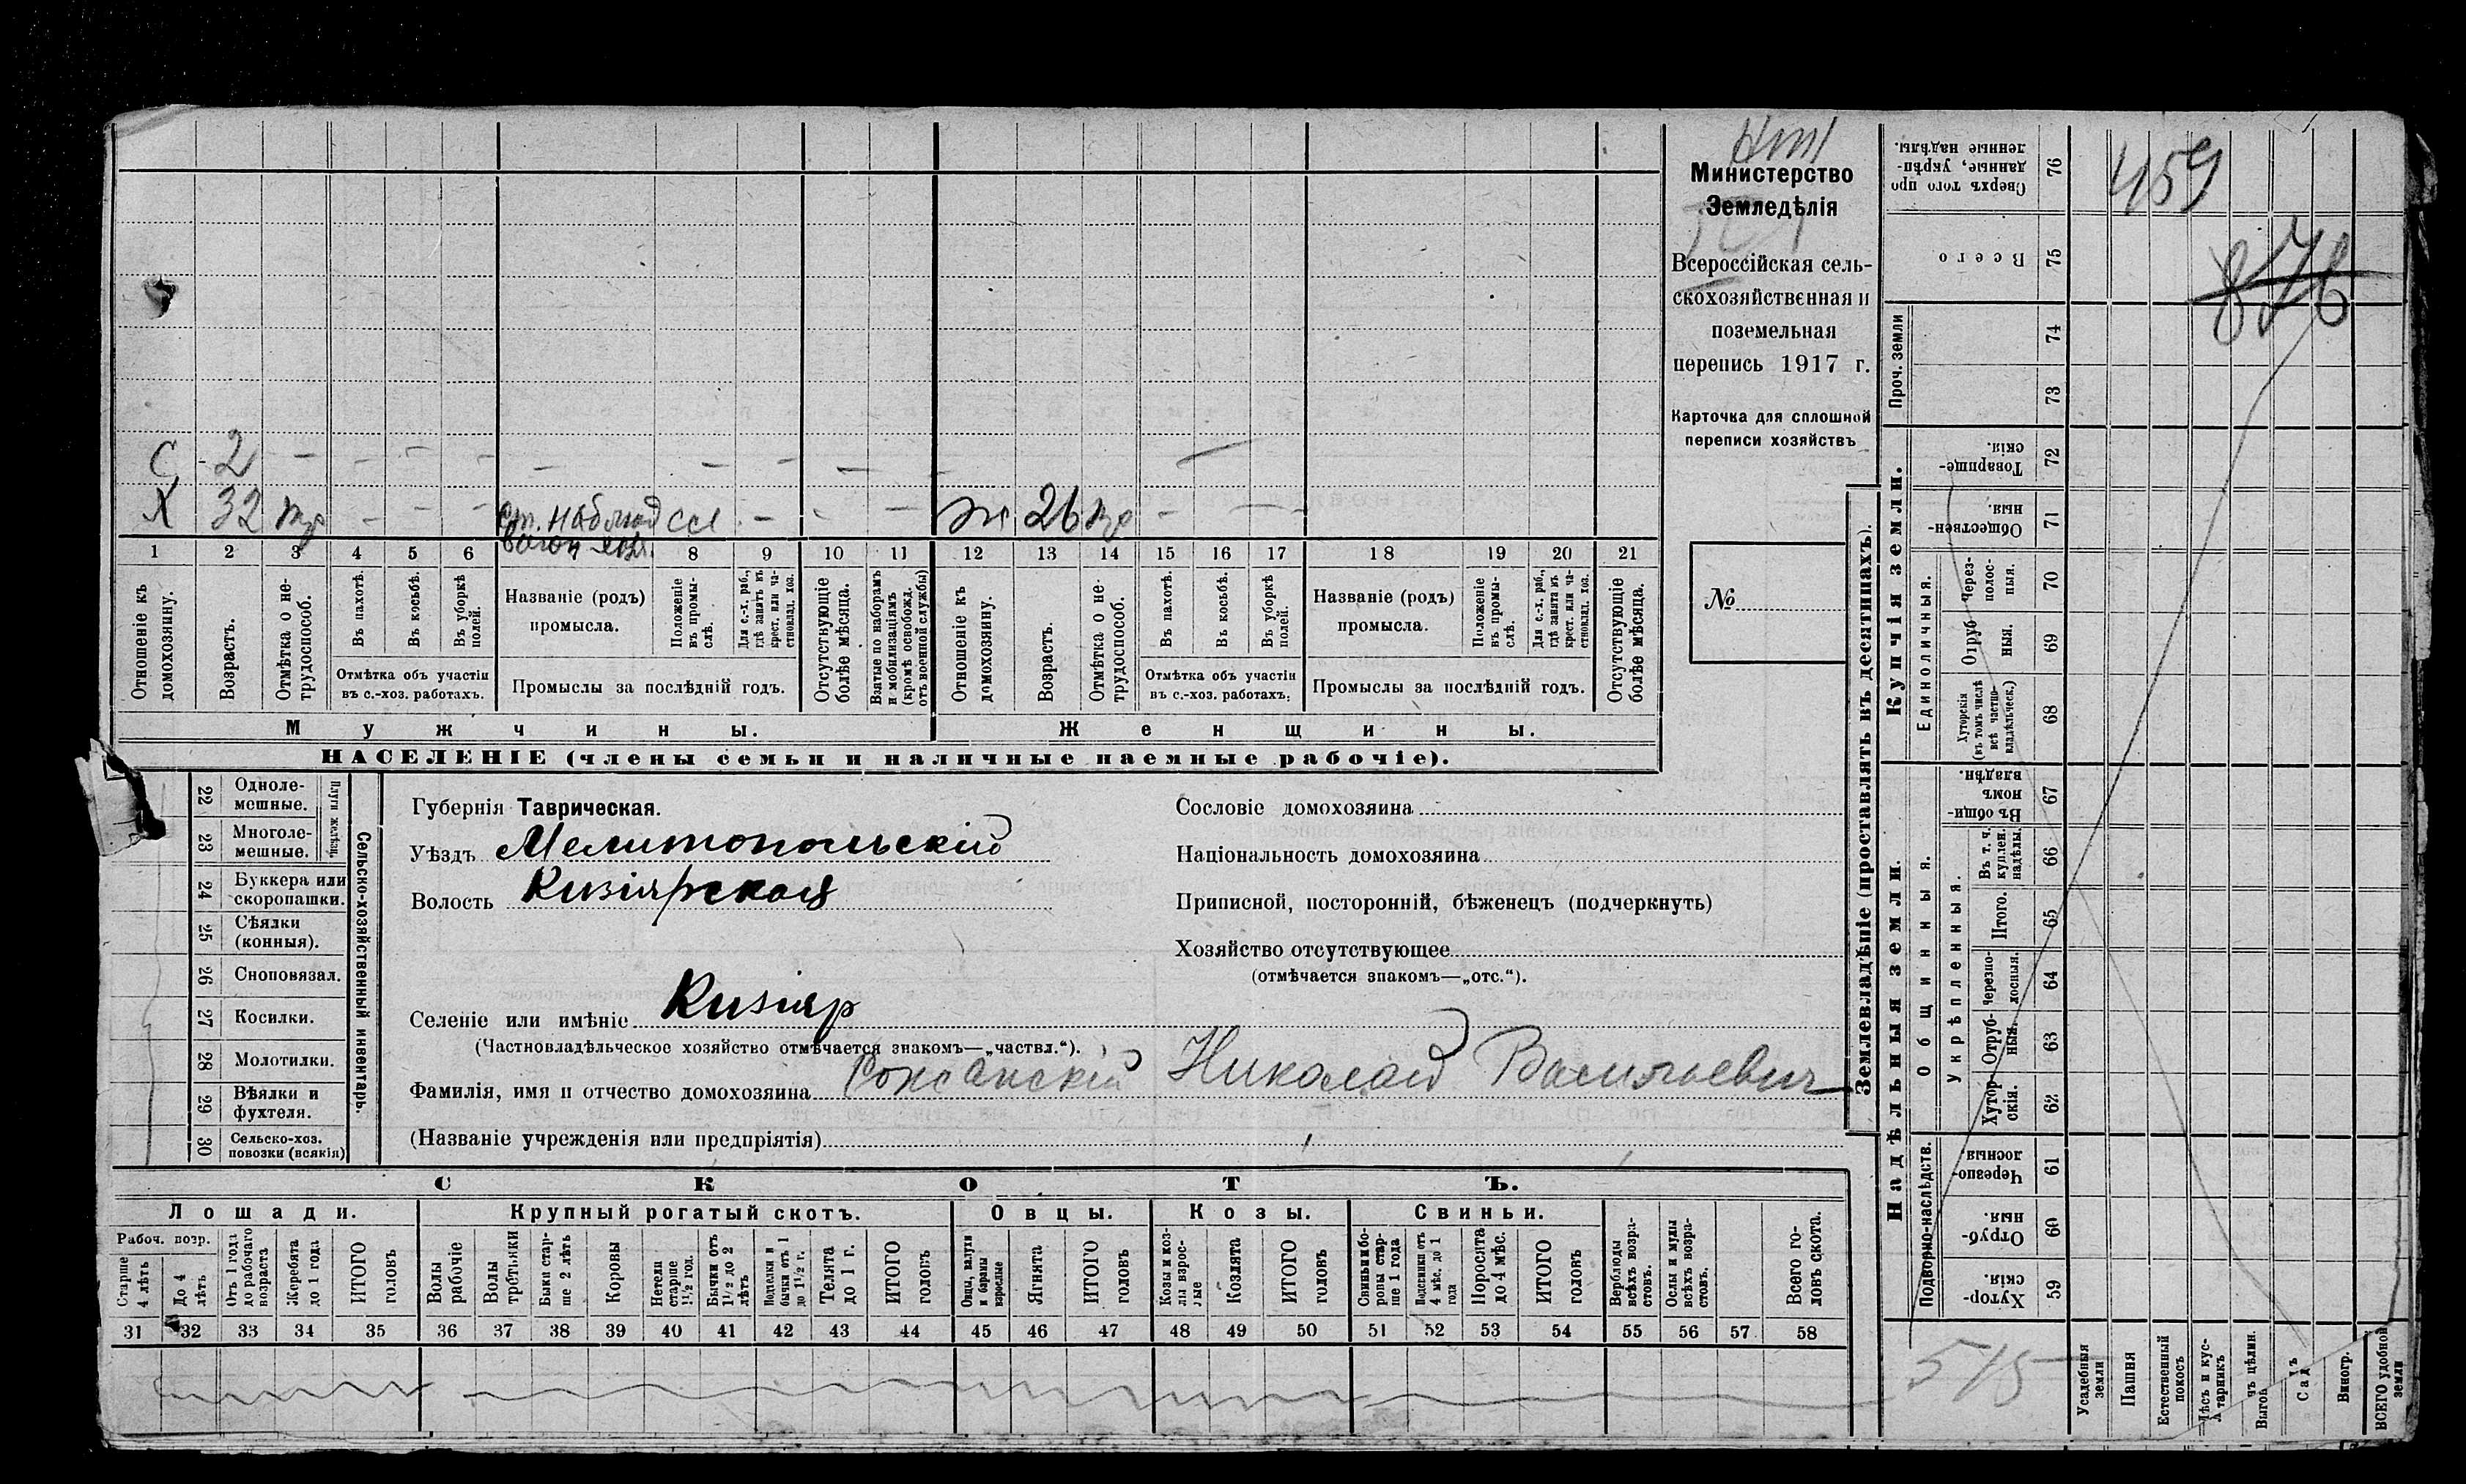 Министерство
Земледѣлія
Всероссійская сель-
скохозяйственная и
поземельная
перепись 1917 г.
Карточка для сплошной
переписи хозяйствъ
№
С 2 – – – – – – – – – –
Х 32 – – – ст. наблюд – – –
вагон
ж 26 – –
1 2 3 4 5 6 8 9 10 11 12 13 14 15 16 17 18 19 20 21
Отношеніе къ домохозяину.
Возрастъ.
Отмѣтка о не-трудоспособ.
Въ пахотѣ.
Въ косьбѣ.
Въ уборкѣ полей.
Отмѣтка объ участіи
въ с.-хоз. работахъ.
Названіе (родъ)
промысла.
Положеніе въ промы-слѣ.
Для с.-х. раб., гдѣ занятъ въ крест. или ча-стновлад. хоз.
Промыслы за послѣдній годъ.
Отсутствующіе болѣе мѣсяца.
Взятые по наборамъ и мобилизаціямъ (кромѣ освобожд. отъ военной службы)
Отношеніе къ домохозяину.
Возрастъ.
Отмѣтка о не-трудоспособ.
Въ пахотѣ.
Въ косьбѣ.
Въ уборкѣ полей.
Отмѣтка объ участіи
въ с.-хоз. работахъ.
Названіе (родъ)
промысла.
Положеніе въ промы-слѣ.
Для с.-х. раб., гдѣ занята въ крест. или ча-стновлад. хоз.
Промыслы за послѣдній годъ.
Отсутствующіе болѣе мѣсяца.
Мужчины.
Женщины.
НАСЕЛЕНІЕ (члены семьи и наличные наемные рабочіе).
Сельско-хозяйственный инвентарь.
Плуги желѣзн.
22 Одноле-
мешные.
23 Многоле-
мешные.
24 Буккера или
скоропашки.
25 Сѣялки
(конныя).
26 Сноповязал.
27 Косилки.
28 Молотилки.
29 Вѣялки и
фухтеля.
30 Сельско-хоз.
повозки (всякія)
Губернія Таврическая.
Уѣздъ Мелитопольскій
Волость Кизіярская
Селеніе или имѣніе Кизіяр
(Частновладѣльческое хозяйство отмѣчается знакомъ—„частвл.“).
Фамилія, имя и отчество домохозяина Николай Васильевич
(Названіе учрежденія или предпріятія)
Сословіе домохозяина
Національность домохозяина
Приписной, посторонній, бѣженецъ (подчеркнуть)
Хозяйство отсутствующее
(отмѣчается знакомъ—„отс.“).
СКОТЪ.
Лошади.
Крупный рогатый скотъ.
Овцы.
Козы.
Свиньи.
Рабоч. возр.
Старше 4 лѣтъ
До 4 лѣтъ
Отъ 1 года до рабочаго возраста
Жеребята до 1 года
ИТОГО головъ
Волы рабочіе
Волы третьяки
Быки стар-ше 2 лѣтъ
Коровы
Нетели старше 1½ год.
Бычки отъ 1½ до 2 лѣтъ
Подтелки и бычки отъ 1 до 1½ г.
Телята до 1 г.
ИТОГО головъ
Овцы, валухи и бараны взрослые
Ягнята
ИТОГО головъ
Козы и коз-лы взрос-лые
Козлята
ИТОГО головъ
Свиньи и бо-ровы стар-ше 1 года
Подсвинки отъ 4 мѣс. до 1 года
Поросята до 4 мѣс.
ИТОГО головъ
Верблюды всѣхъ возра-стовъ.
Ослы и мулы всѣхъ возра-стовъ.
Всего го-ловъ скота.
31 32 33 34 35 36 37 38 39 40 41 42 43 44 45 46 47 48 49 50 51 52 53 54 55 56 57 58
Землевладѣніе (проставлять въ десятинахъ).
Надѣльныя земли.
Купчія земли.
Проч. земли
Подворно-наслѣдств.
Общинныя.
Укрѣпленныя.
Единоличныя.
76 Сверхъ того про
данные, укрѣп-
ленные надѣлы.
75 Всего
74
73
72 Товарище-
скія.
71 Обществен-
ныя.
70 Через-
полос-
ныя.
69 Отруб
ныя.
68 Хуторскія
(въ томъ числѣ
всѣ частно-
владѣльческ.)
67 Въ общи-
номъ
владѣн.
66 Въ т. ч.
куплен.
надѣлы.
65 Итого.
64 Черезпо-
лосныя.
63 Отруб-
ныя.
62 Хутор
скія.
61 Черезпо-
лосныя.
60 Отруб-
ныя.
59 Хутор-
скія.
Усадебныя земли
Пашня
Естественный покосъ
Лѣсъ и кус-тарникъ
Садъ
Виногр.
ВСЕГО удобной земли
459
876
515